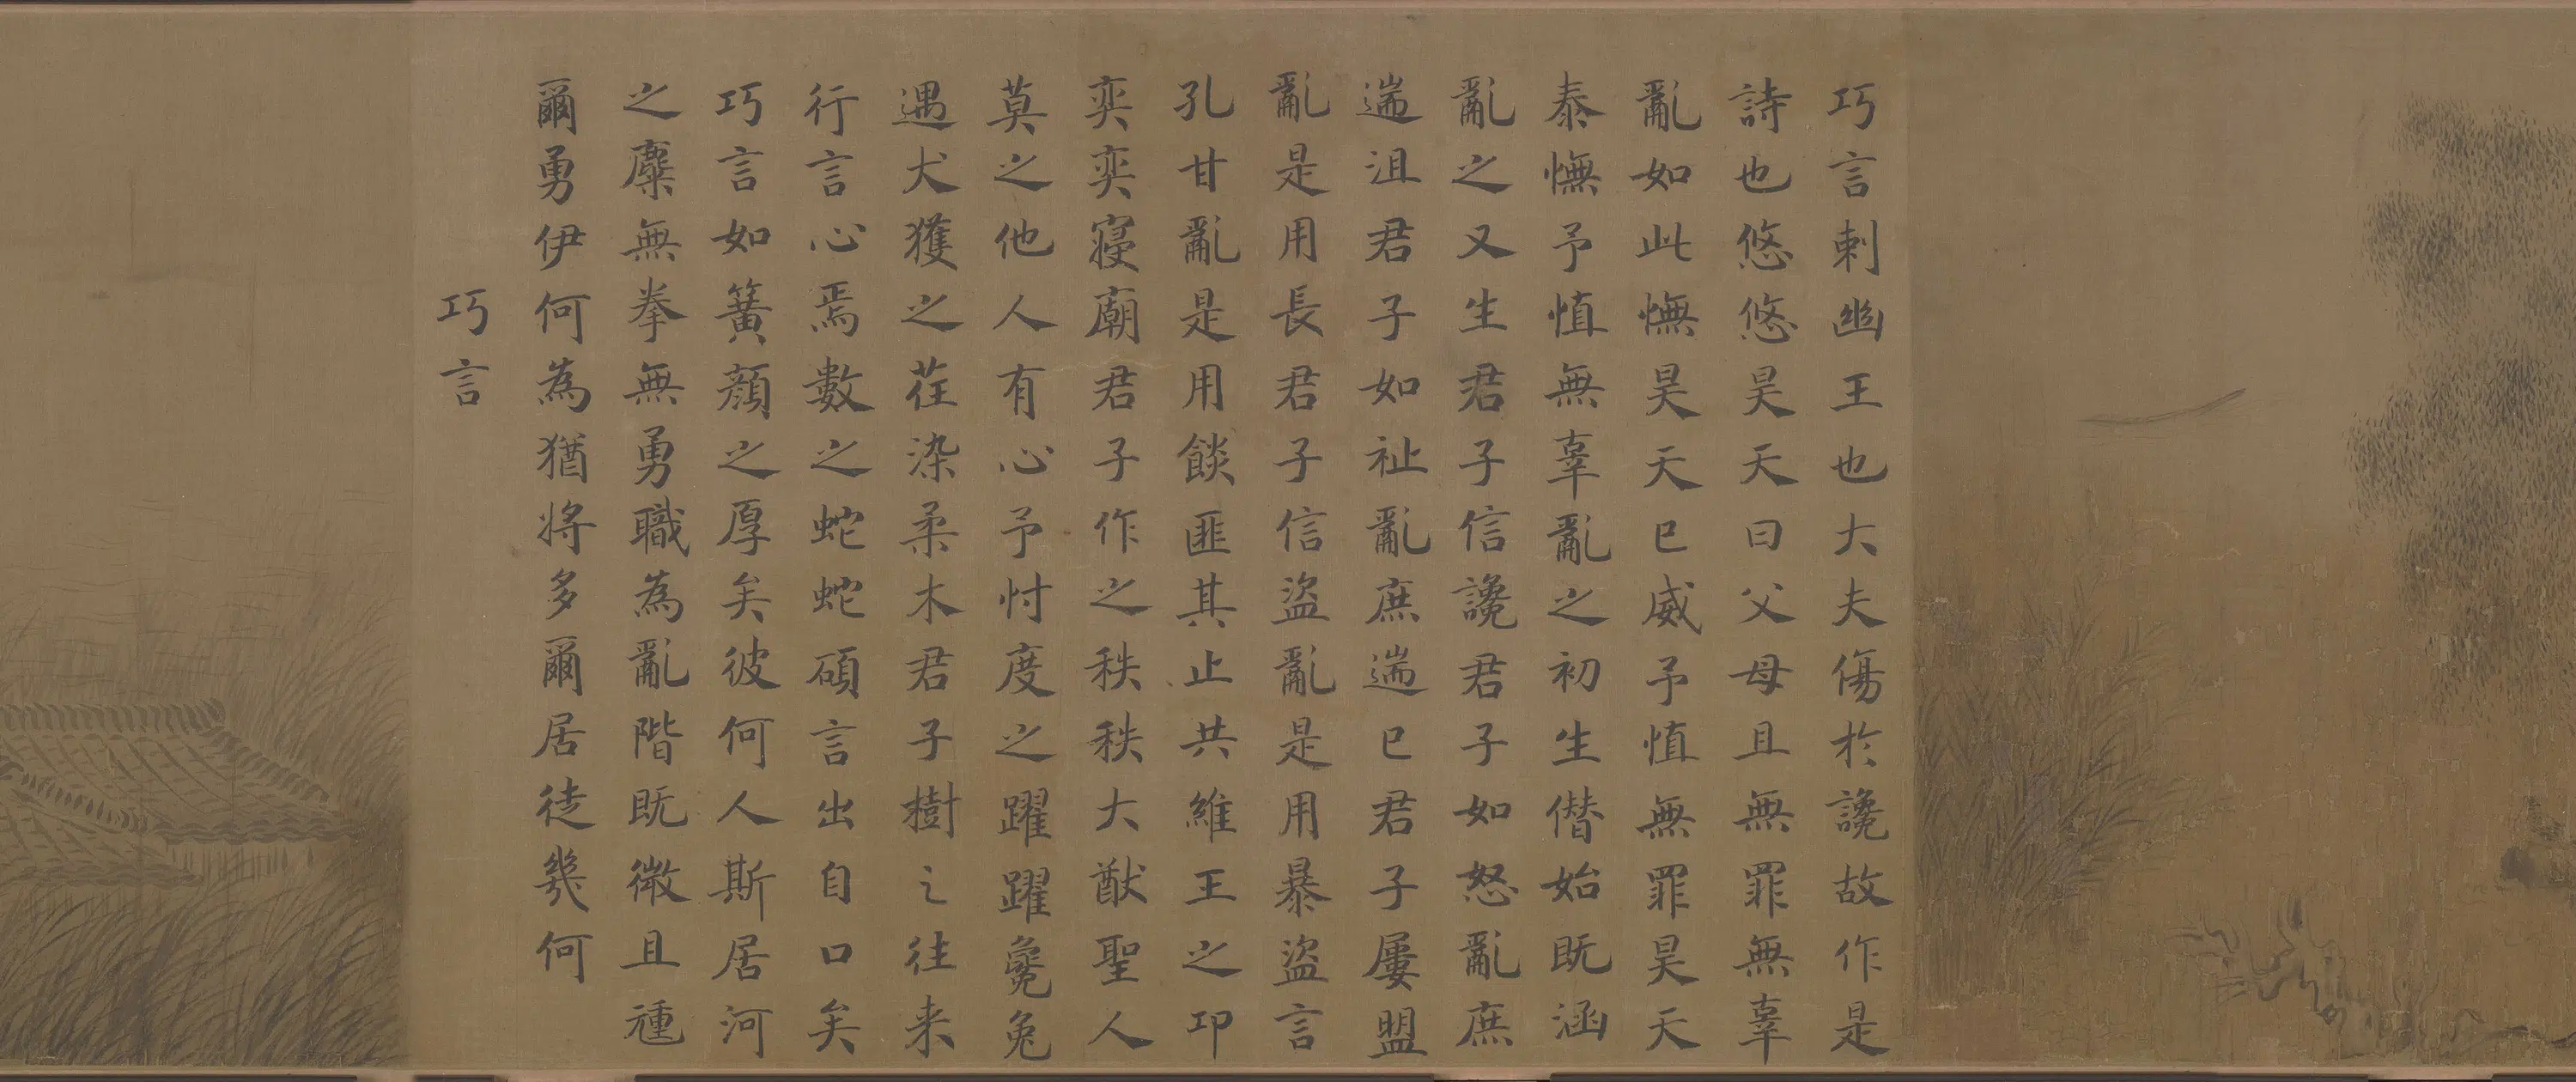 巧言刺幽王也大夫傷於讒故作是
詩也悠悠昊天曰父母且無罪無辜
亂如此憮昊天已威予慎無罪昊天
泰憮予慎無辜亂之初生僭始既涵
亂之又生君子信讒君子如怒亂庶
遄沮君子如祉亂庶遄已君子屢盟
亂是用長君子信盜亂是用暴盜言
孔甘亂是用餤匪其止共維王之卭
奕奕寢廟君子作之秩秩大猷聖人
莫之他人有心予忖度之躍躍毚兔
遇犬獲之荏染柔木君子樹之往来
行言心焉數之蛇蛇碩言出自口矣
巧言如簧顏之厚矣彼何人斯居河
之麋無拳無勇職為亂階既微且瘇
爾勇伊何為猶將多爾居徒幾何
巧言